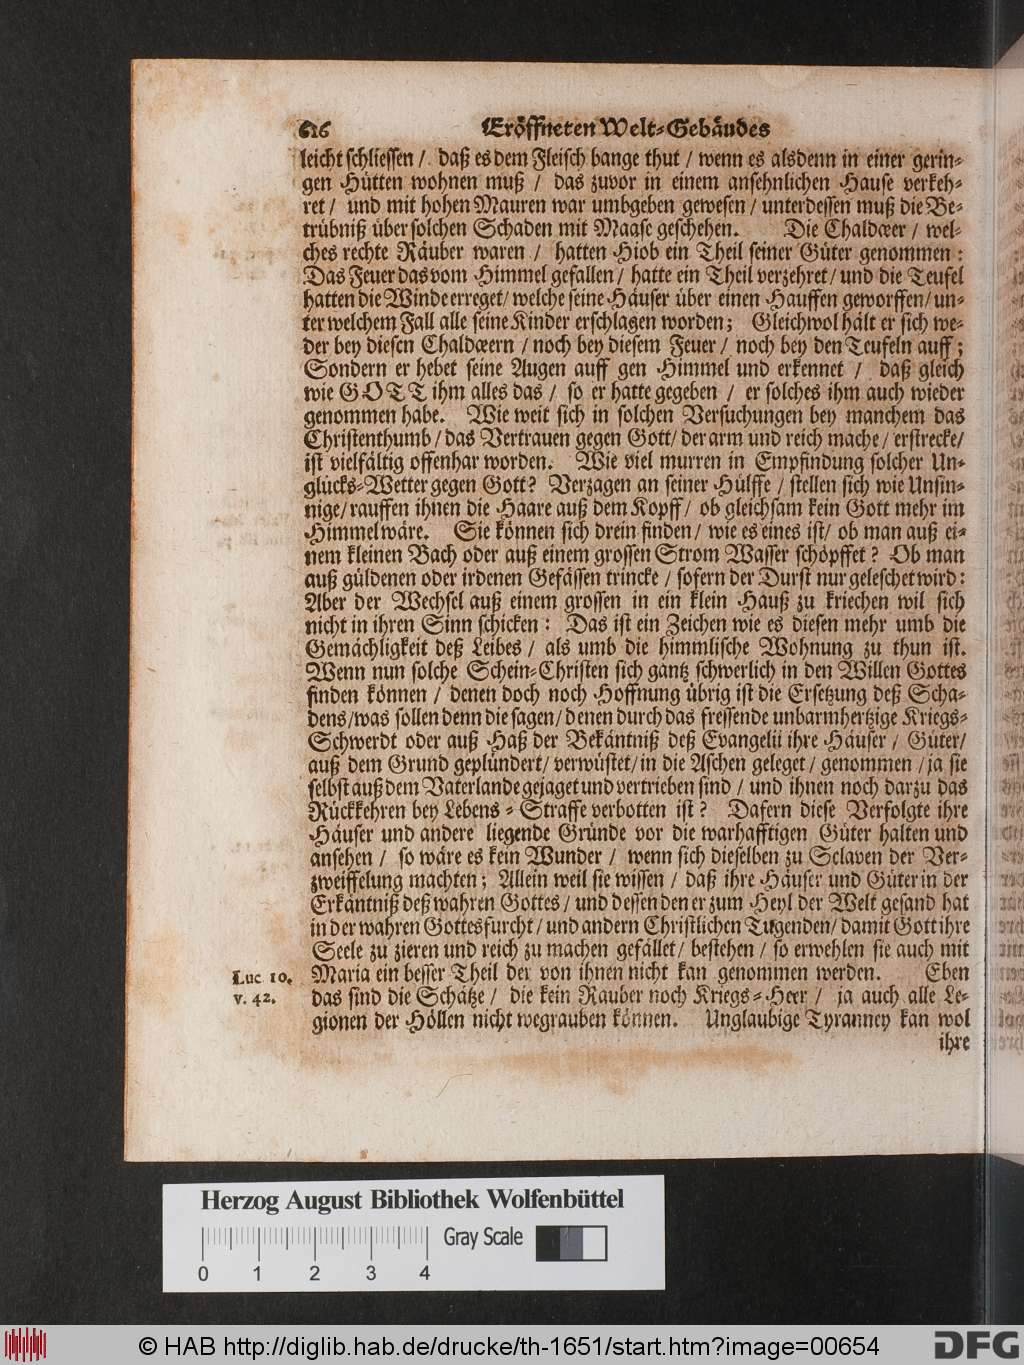 616 Eröffneten Welt-Gebäudes
leicht schliessen / daß es dem Fleisch bange thut / wenn es alsdenn in einer gerin-
gen Hütten wohnen muß / das zuvor in einem ansehnlichen Hause verkeh-
ret / und mit hohen Mauren war umbgeben gewesen / unterdessen muß die Be-
trübniß über solchen Schaden mit Maase geschehen. Die Chaldæer / wel-
ches rechte Räuber waren / hatten Hiob ein Theil seiner Güter genommen :
Das Feuer das vom Himmel gefallen / hatte ein Theil verzehret / und die Teufel
hatten die Winde erreget / welche seine Häuser über einen Hauffen geworffen / un-
ter welchem Fall alle seine Kinder erschlagen worden ; Gleichwol hält er sich we-
der bey diesen Chaldæern / noch bey diesem Feuer / noch bey den Teufeln auff ;
Sondern er hebet seine Augen auff gen Himmel und erkennet / daß gleich
wie GOTT ihm alles das / so er hatte gegeben / er solches ihm auch wieder
genommen habe. Wie weit sich in solchen Versuchungen bey manchem das
Christenthumb / das Vertrauen gegen Gott / der arm und reich mache / erstrecke /
ist vielfältig offenhar worden. Wie viel murren in Empfindung solcher Un-
glücks-Wetter gegen Gott? Verzagen an seiner Hülffe / stellen sich wie Unsin-
nige / rauffen ihnen die Haare auß dem Kopff / ob gleichsam kein Gott mehr im
Himmel wäre. Sie können sich drein finden / wie es eines ist / ob man auß ei-
nem kleinen Bach oder auß einem grossen Strom Wasser schöpffet ? Ob man
auß güldenen oder irdenen Gefässen trincke / sofern der Durst nur geleschet wird :
Aber der Wechsel auß einem grossen in ein klein Hauß zu kriechen wil sich
nicht in ihren Sinn schicken : Das ist ein Zeichen wie es diesen mehr umb die
Gemächligkeit deß Leibes / als umb die himmlische Wohnung zu thun ist.
Wenn nun solche Schein-Christen sich gantz schwerlich in den Willen Gottes
finden können / denen doch noch Hoffnung übrig ist die Ersetzung deß Scha-
dens / was sollen denn die sagen / denen durch das fressende unbarmhertzige Kriegs-
Schwerdt oder auß Haß der Bekäntniß deß Evangelii ihre Häuser / Güter /
auß dem Grund geplündert / verwüstet / in die Aschen geleget / genommen / ja sie
selbst auß dem Vaterlande gejaget und vertrieben sind / und ihnen noch darzu das
Rückkehren bey Lebens-Straffe verbotten ist ? Dafern diese Verfolgte ihre
Häuser und andere liegende Gründe vor die warhafftigen Güter halten und
ansehen / so wäre es kein Wunder / wenn sich dieselben zu Sclaven der Ver-
zweiffelung machten ; Allein weil sie wissen / daß ihre Häuser und Güter in der
Erkäntniß deß wahren Gottes / und dessen den er zum Heyl der Welt gesand hat
in der wahren Gottesfurcht / und andern Christlichen Tugenden / damit Gott ihre
Seele zu zieren und reich zu machen gefället / bestehen / so erwehlen sie auch mit
Luc 10. Maria ein besser Theil der von ihnen nicht kan genommen werden. Eben
v. 42. das sind die Schätze / die kein Rauber noch Kriegs-Heer / ja auch alle Le-
gionen der Höllen nicht wegrauben können. Unglaubige Tyranney kan wol
ihre
Herzog August Bibliothek Wolfenbüttel
Gray Scale
0 1 2 3 4
© HAB http://diglib.hab.de/drucke/th-1651/start.htm?image=00654
DFG